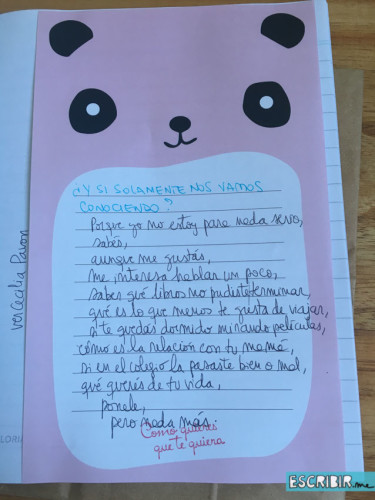 ¿Y SI SOLAMENTE NOS VAMOS
CONOCIENDO?
Porque yo no estoy para nada serio,
sabés,
aunque me gustás,
me interesa hablar un poco,
saber qué libros no pudiste terminar,
qué es lo que menos te gusta de viajar,
si te quedás dormido mirando películas,
cómo es la relación con tu mamá,
si en el colegio la pasaste bien o mal,
qué querés de tu vida,
ponele,
pero nada más.
Como quieras
que te quiera
ver Cecilia Pavon
ESCRIBIR.me